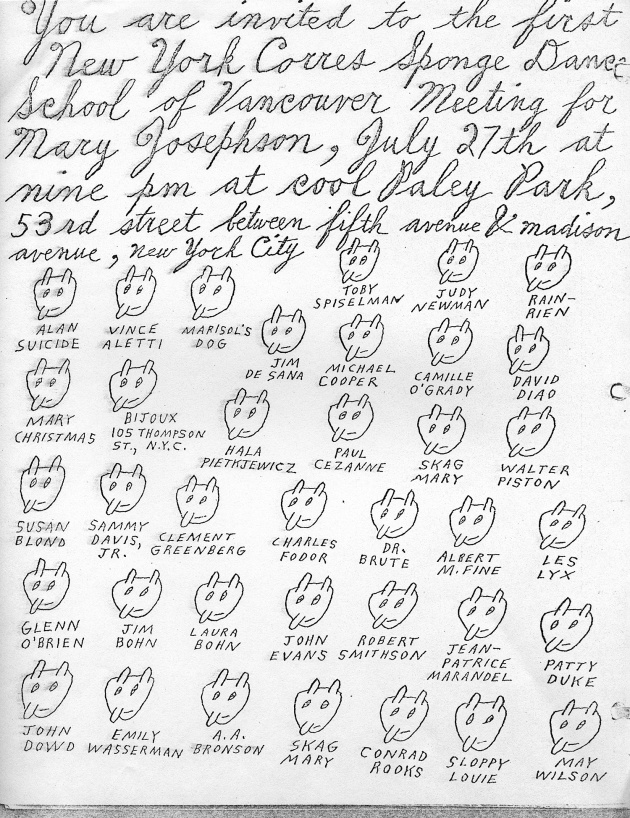 You are invited to the first
New York Corres Sponge Dance
School of Vancouver Meeting for
Mary Josephson, July 27th at
nine pm at cool Paley Park,
53rd street between fifth avenue & madison
avenue, New York City
TOBY
SPISELMAN
JUDY
NEWMAN
RAIN-
RIEN
ALAN
SUICIDE
VINCE
ALETTI
MARISOL'S
DOG
JIM
DE SANA
MICHAEL
COOPER
CAMILLE
O'GRADY
DAVID
DIAO
MARY
CHRISTMAS
BIJOUX
105 THOMPSON
ST., N.Y.C.
HALA
PIETKJEWICZ
PAUL
CEZANNE
SKAG
MARY
WALTER
PISTON
SUSAN
BLOND
SAMMY
DAVIS,
JR.
CLEMENT
GREENBERG
CHARLES
FODOR
DR.
BRUTE
ALBERT
M. FINE
LES
LYX
GLENN
O'BRIEN
JIM
BOHN
LAURA
BOHN
JOHN
EVANS
ROBERT
SMITHSON
JEAN-
PATRICE
MARANDEL
PATTY
DUKE
JOHN
DOWD
EMILY
WASSERMAN
A.A.
BRONSON
SKAG
MARY
CONRAD
ROOKS
SLOPPY
LOUIE
MAY
WILSON